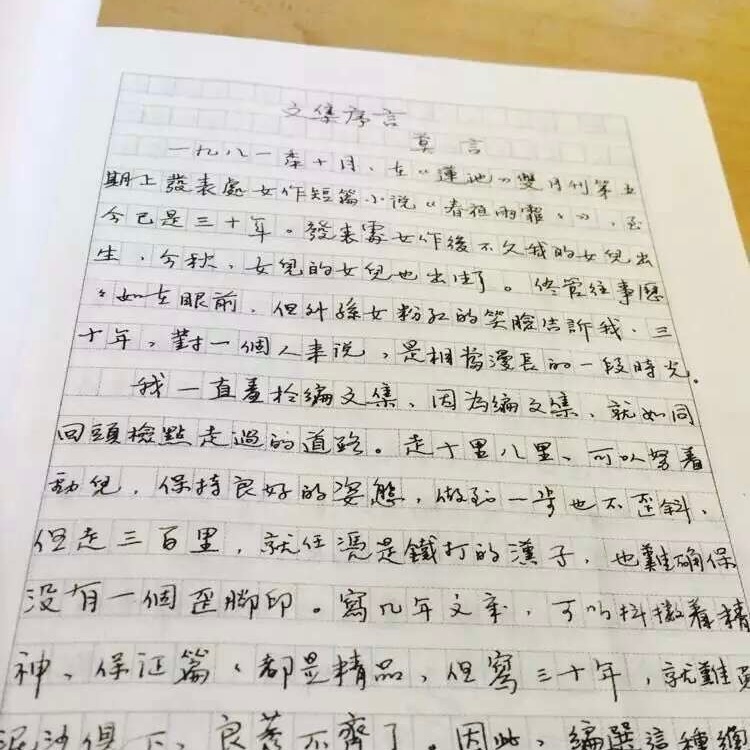 文集序言
莫言
一九八一年十月、在《蓮池》雙月刊第五
期上發表處女作短篇小说《春夜雨霏〻》，至
今已是三十年。發表處女作後不久我的女兒出
生，今秋，女兒的女兒也出生了。儘管往事歷
〻如在眼前，但外孫女粉紅的笑臉告訴我，三
十年，對一個人来说，是相當漫長的一段時光。
我一直羞於編文集，因為編文集，就如同
回頭檢點走過的道路。走十里八里、可以努着
勁兒，保持良好的姿態，做到一步也不歪斜，
但走三百里，就任凴是鐵打的漢子，也難确保
没有一個歪脚印。寫几年文章，可以抖擻着精
神、保证篇〻都是精品，但寫三十年，就難免
泥沙俱下、良莠不齊了。因此、編選這種